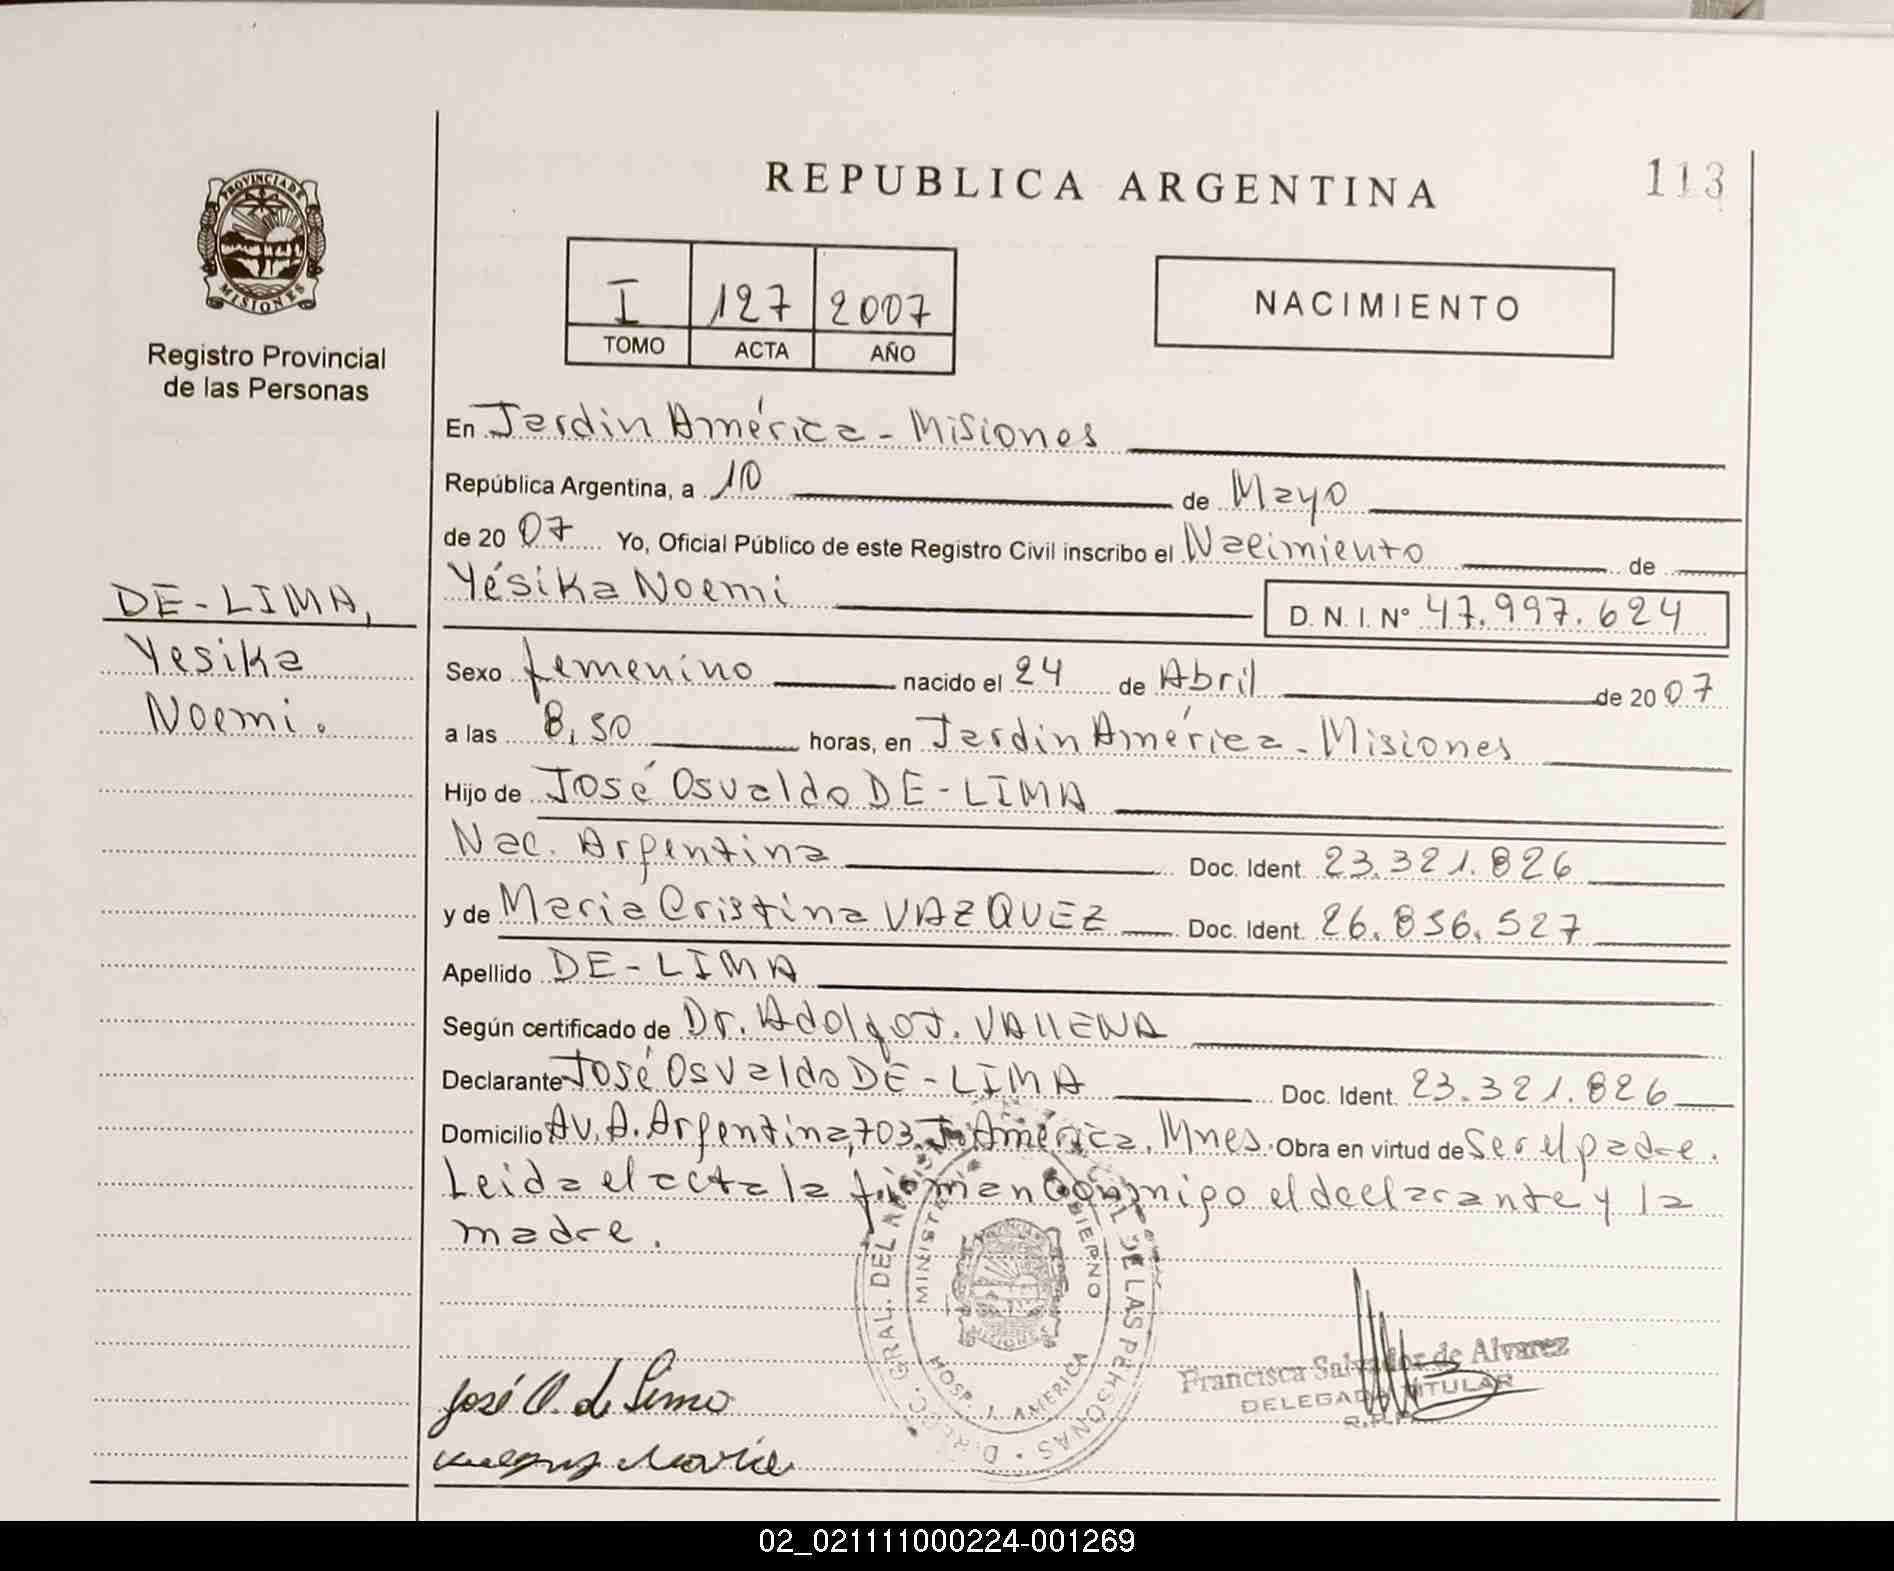 REPUBLICA ARGENTINA
113
PROVINCIA DE MISIONES
Registro Provincial
de las Personas
I 127 2007
TOMO ACTA AÑO
NACIMIENTO
DE-LIMA,
Yesika
Noemi.
En Jardin América - Misiones
República Argentina, a 10 de Mayo
de 2007 Yo, Oficial Público de este Registro Civil inscribo el Nacimiento de
Yésika Noemi D. N. I. Nº 47.997.624
Sexo femenino nacido el 24 de Abril de 2007
a las 8,50 horas, en Jardin América - Misiones
Hijo de José Osvaldo DE-LIMA
Nac. Argentina Doc. Ident. 23.321.826
y de Maria Cristina VAZQUEZ Doc. Ident. 26.856.527
Apellido DE-LIMA
Según certificado de Dr. Adolfo J. VALLENA
Declarante José Osvaldo DE-LIMA Doc. Ident. 23.321.826
Domicilio AV. A. Argentina, 703. J. América. Mnes. Obra en virtud de Ser el padre.
Leida el acta la firman conmigo el declarante y la
madre.
GRAL. DEL DE LAS PERSONAS
HOSP. J. AMERICA
José O. de Lima
Francisca Salvador de Alvarez
DELEGADA TITULAR
02_021111000224-001269